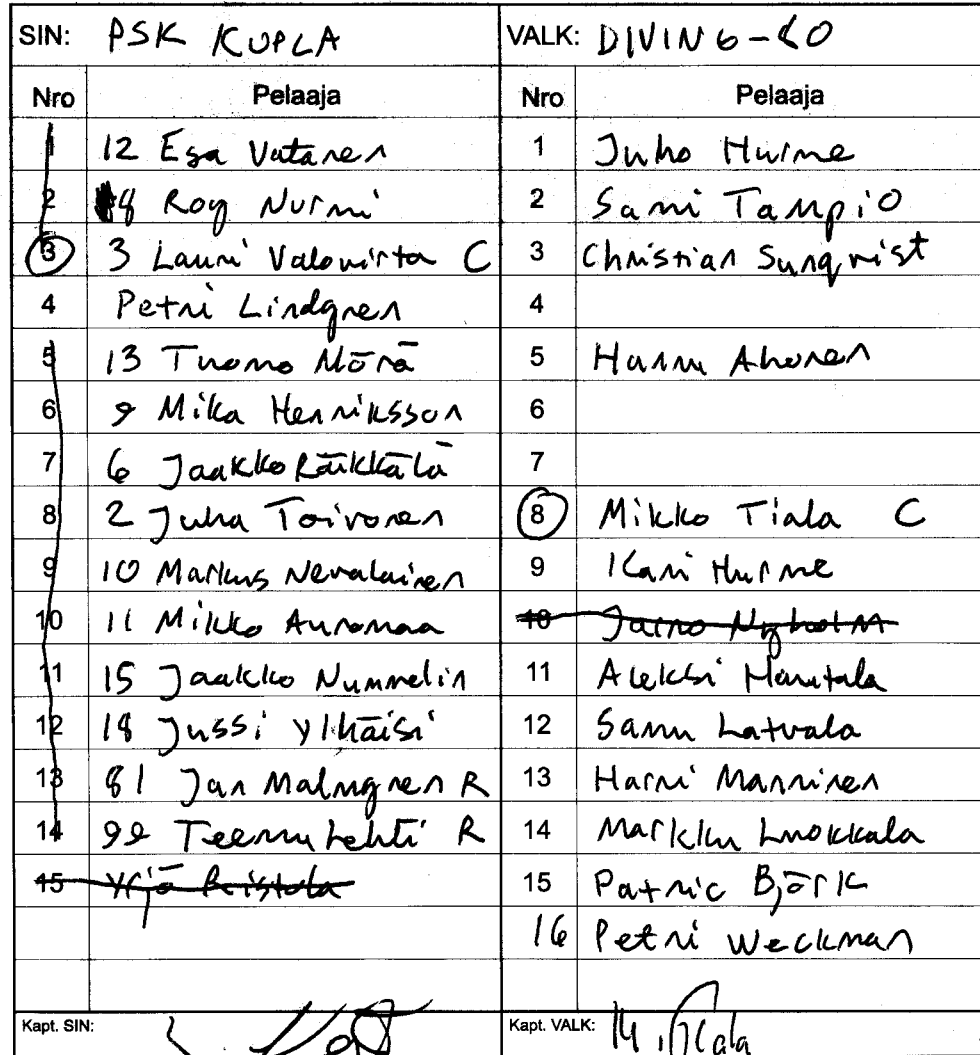 SIN: PSK KUPLA
Nro Pelaaja
1 12 Esa Vatanen
2 8 Roy Nurmi
3 3 Lauri Valovirta C
4 Petri Lindgren
5 13 Tuomo Mörä
6 9 Mika Henriksson
7 6 Jaakko Räikkälä
8 2 Juha Toivonen
9 10 Markus Nevalainen
10 11 Mikko Auromaa
11 15 Jaakko Nummelin
12 18 Jussi Ylhäisi
13 81 Jan Malmgren R
14 99 Teemu Lehti R
15 Yrjö
Kapt. SIN:
VALK: DIVING-80
Nro Pelaaja
1 Juho Hurme
2 Sami Tampio
3 Christian Sunqvist
4
5 Hannu Ahonen
6
7
8 Mikko Tiala C
9 Kari Hurme
10 Jarno Nyholm
11 Aleksi Hautala
12 Samu Latvala
13 Harri Manninen
14 Markku Luokkala
15 Patric Björk
16 Petri Weckman
Kapt. VALK: